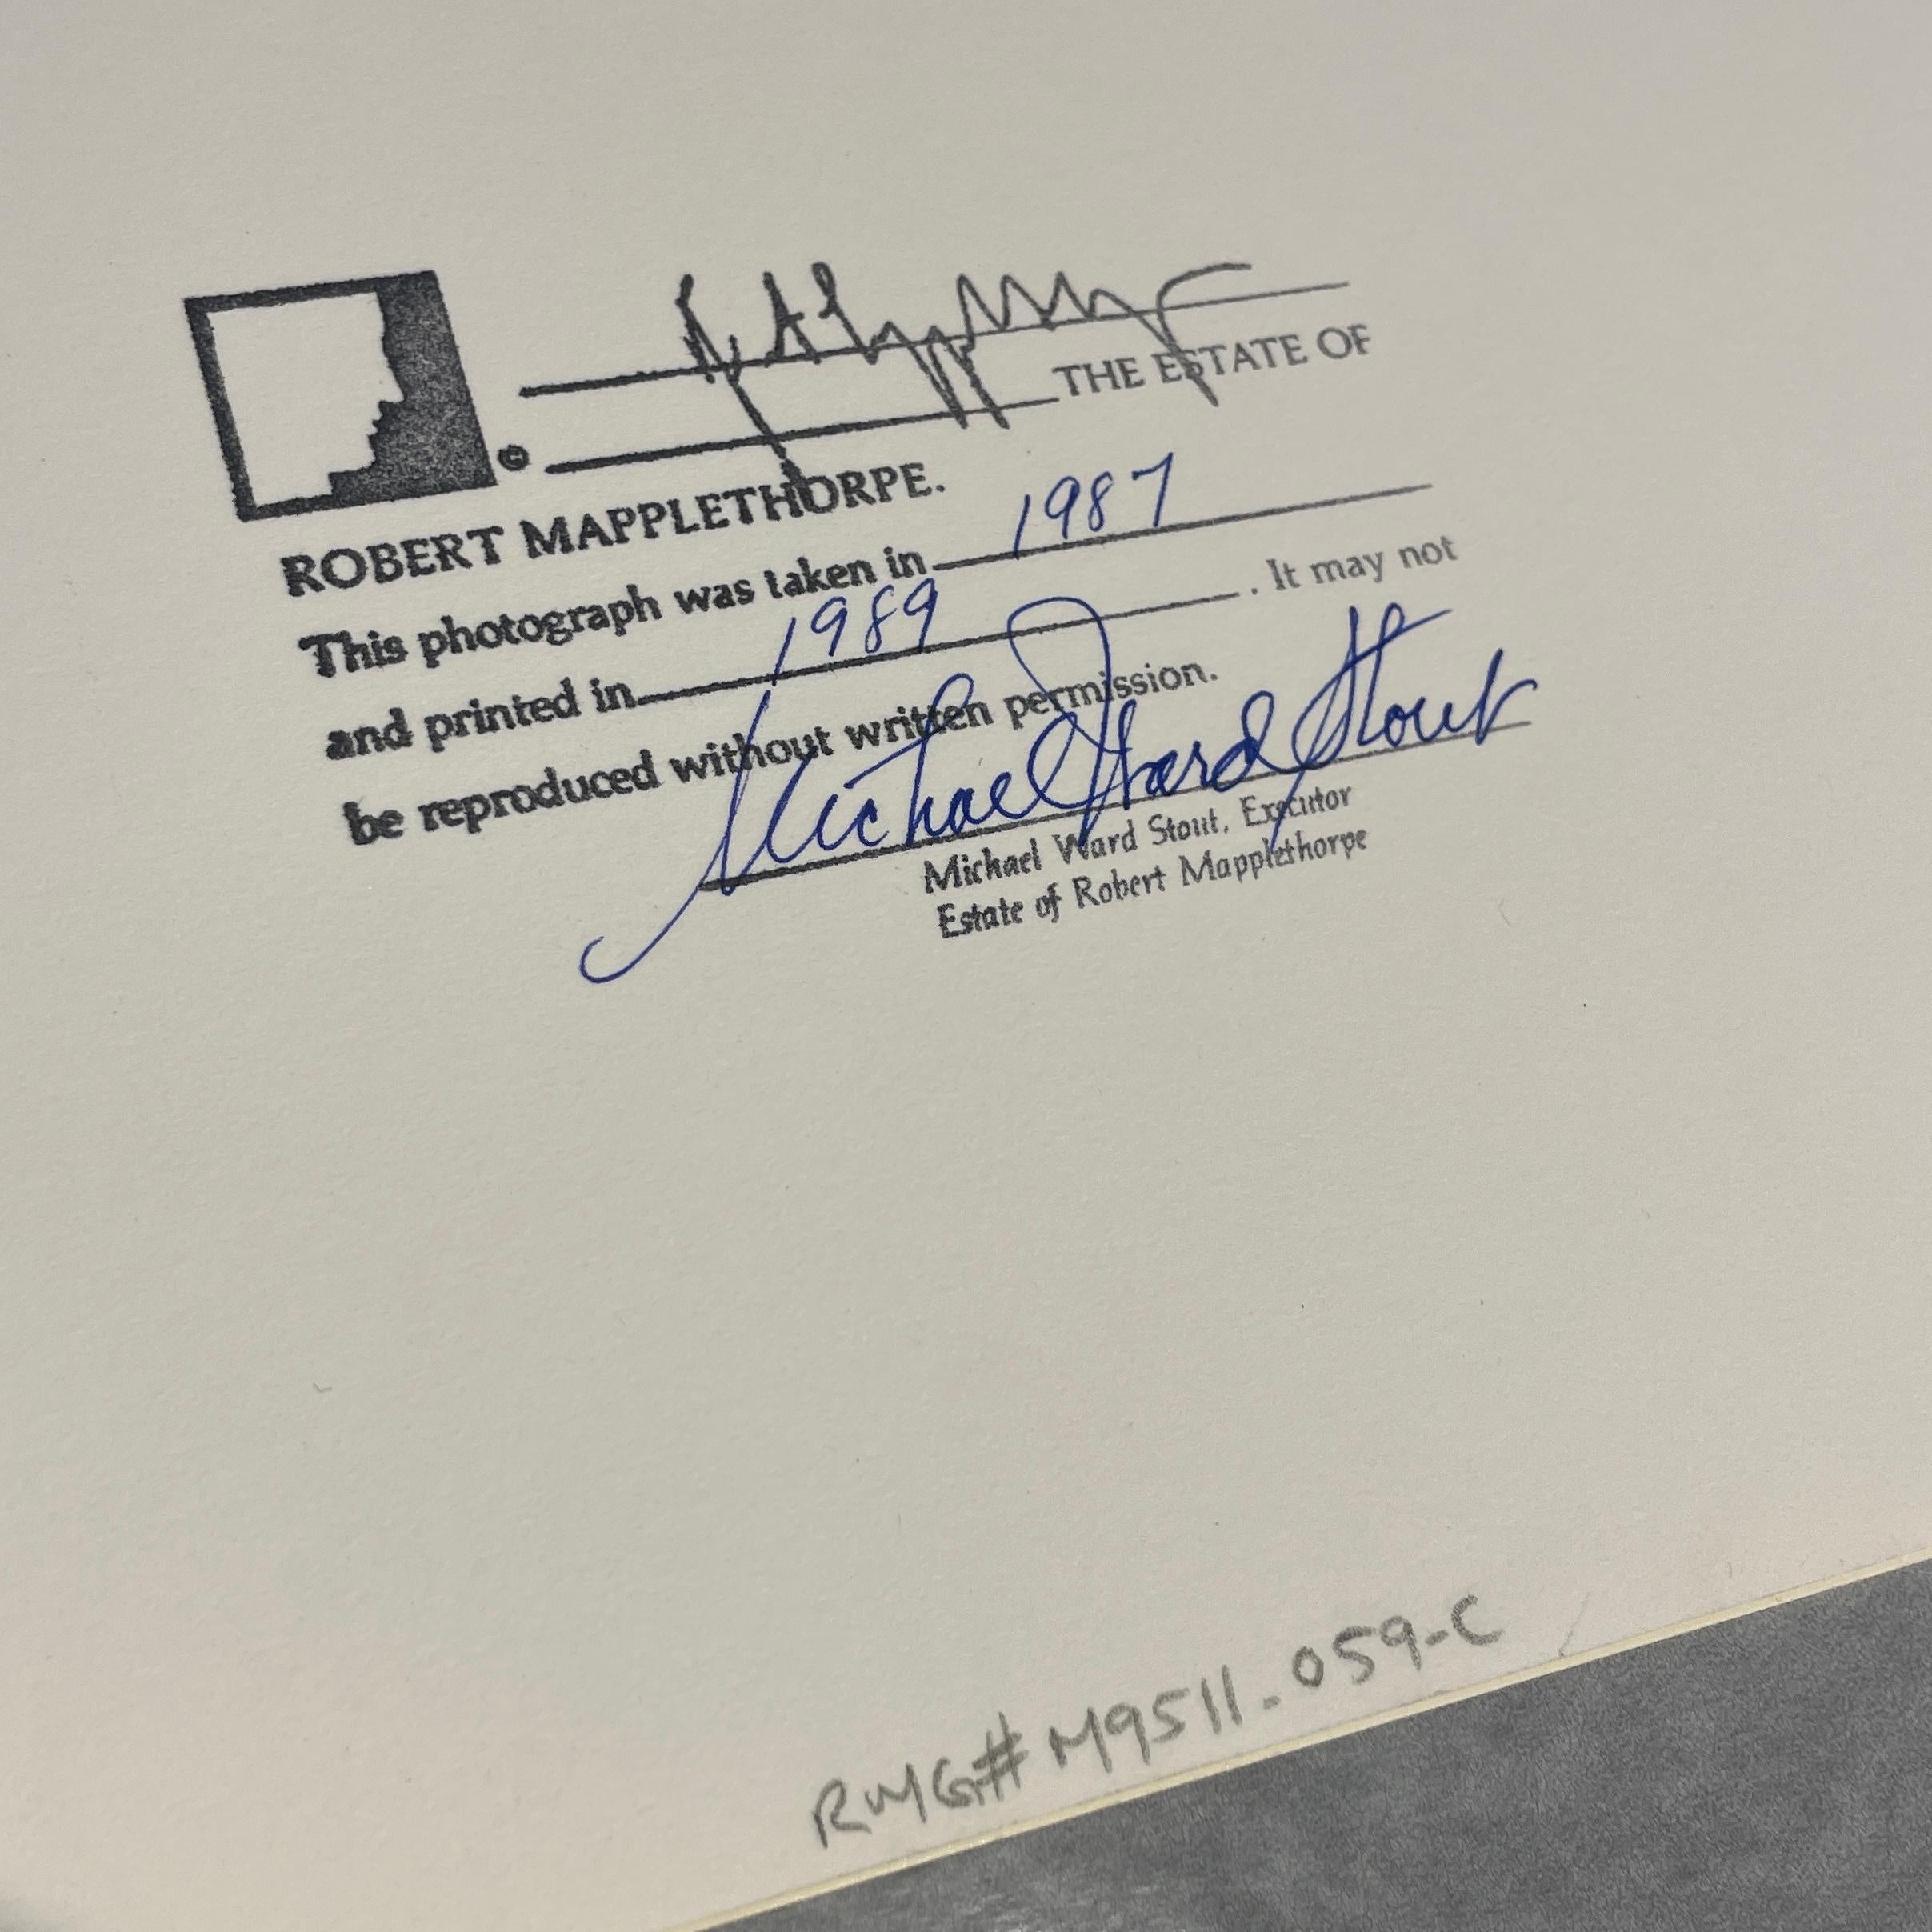 © THE ESTATE OF
ROBERT MAPPLETHORPE.
This photograph was taken in 1987
and printed in 1989 . It may not
be reproduced without written permission.
Michael Ward Stout
Michael Ward Stout, Executor
Estate of Robert Mapplethorpe
RMG# M9511-059-C